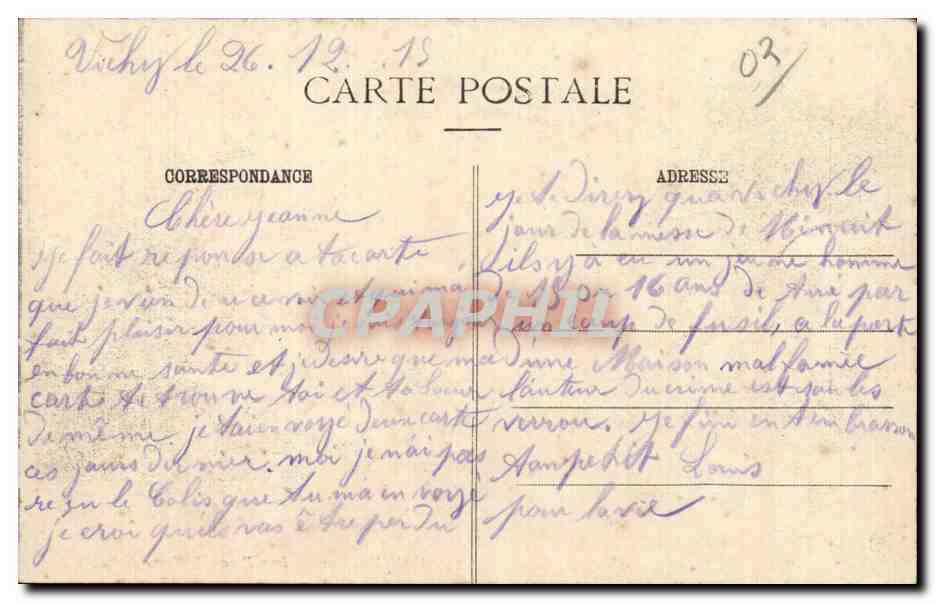 Vichy le 26. 12. 15
03
CARTE POSTALE
CORRESPONDANCE
Chère Jeanne
Je fait reponse a ta carte
que je vien de recevoir et qui ma
fait plaisir pour moi je suis
en bonne sante et je desire que ma
carte te trouve toi et ta soeur
de même. je tai envoyé deux carte
ces jours dernier. moi je n'ai pas
reçu le Colis que tu ma envoyé
je croi quils vas être perdu
ADRESSE
je te direz qua vichy le
jour de la messe de Minuit
ils y a eu un jeune homme
de 15 ou 16 ans de tué par
un coup de fusil, a la porte
d'une Maison malfamée
l'auteur du crime est sous les
verrou. Je fini en tembrassan
ton petit Louis
pour la vie
CPARAMA CPAPHIL